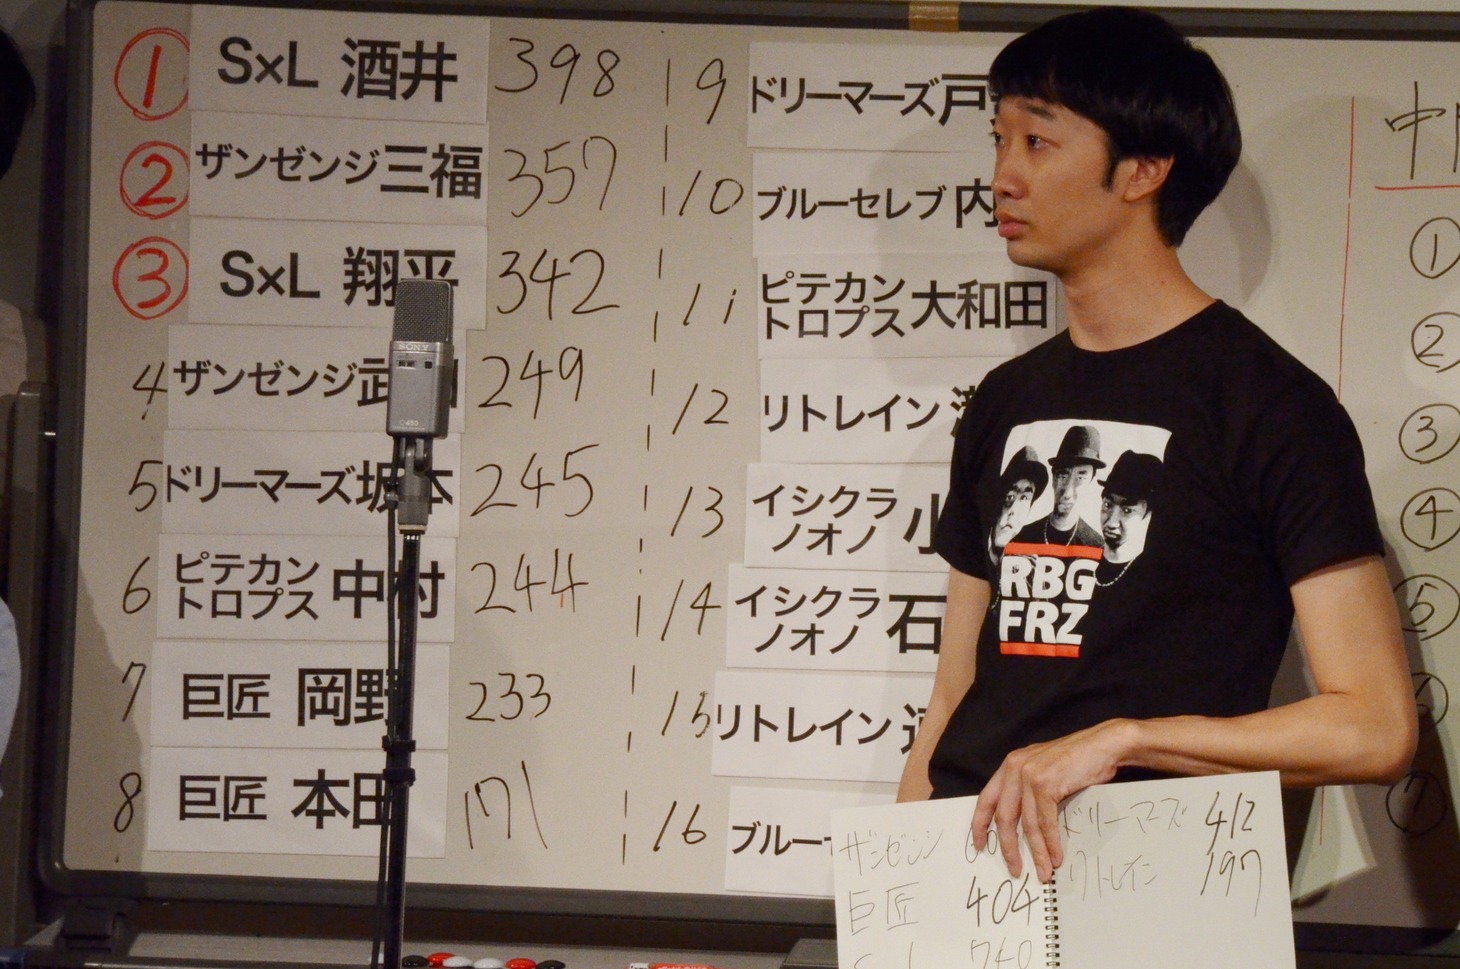 ① S×L 酒井 398
② ザンゼンジ 三福 357
③ S×L 翔平 342
4 ザンゼンジ 249
5 ドリーマーズ 坂本 245
6 ピテカン
トロプス 中村 244
7 巨匠 岡野 233
8 巨匠 本田 171
9 ドリーマーズ
10 ブルーセレブ 内
11 ピテカン
トロプス 大和田
12 リトレイン
13 イシクラ
ノオノ 小
14 イシクラ
ノオノ 石
15 リトレイン
16 ブルー
中
①
②
③
④
⑤
⑦
SONY
RBG
FRZ
ザンゼンジ
巨匠 404
740
ドリーマーズ 412
リトレイン 197